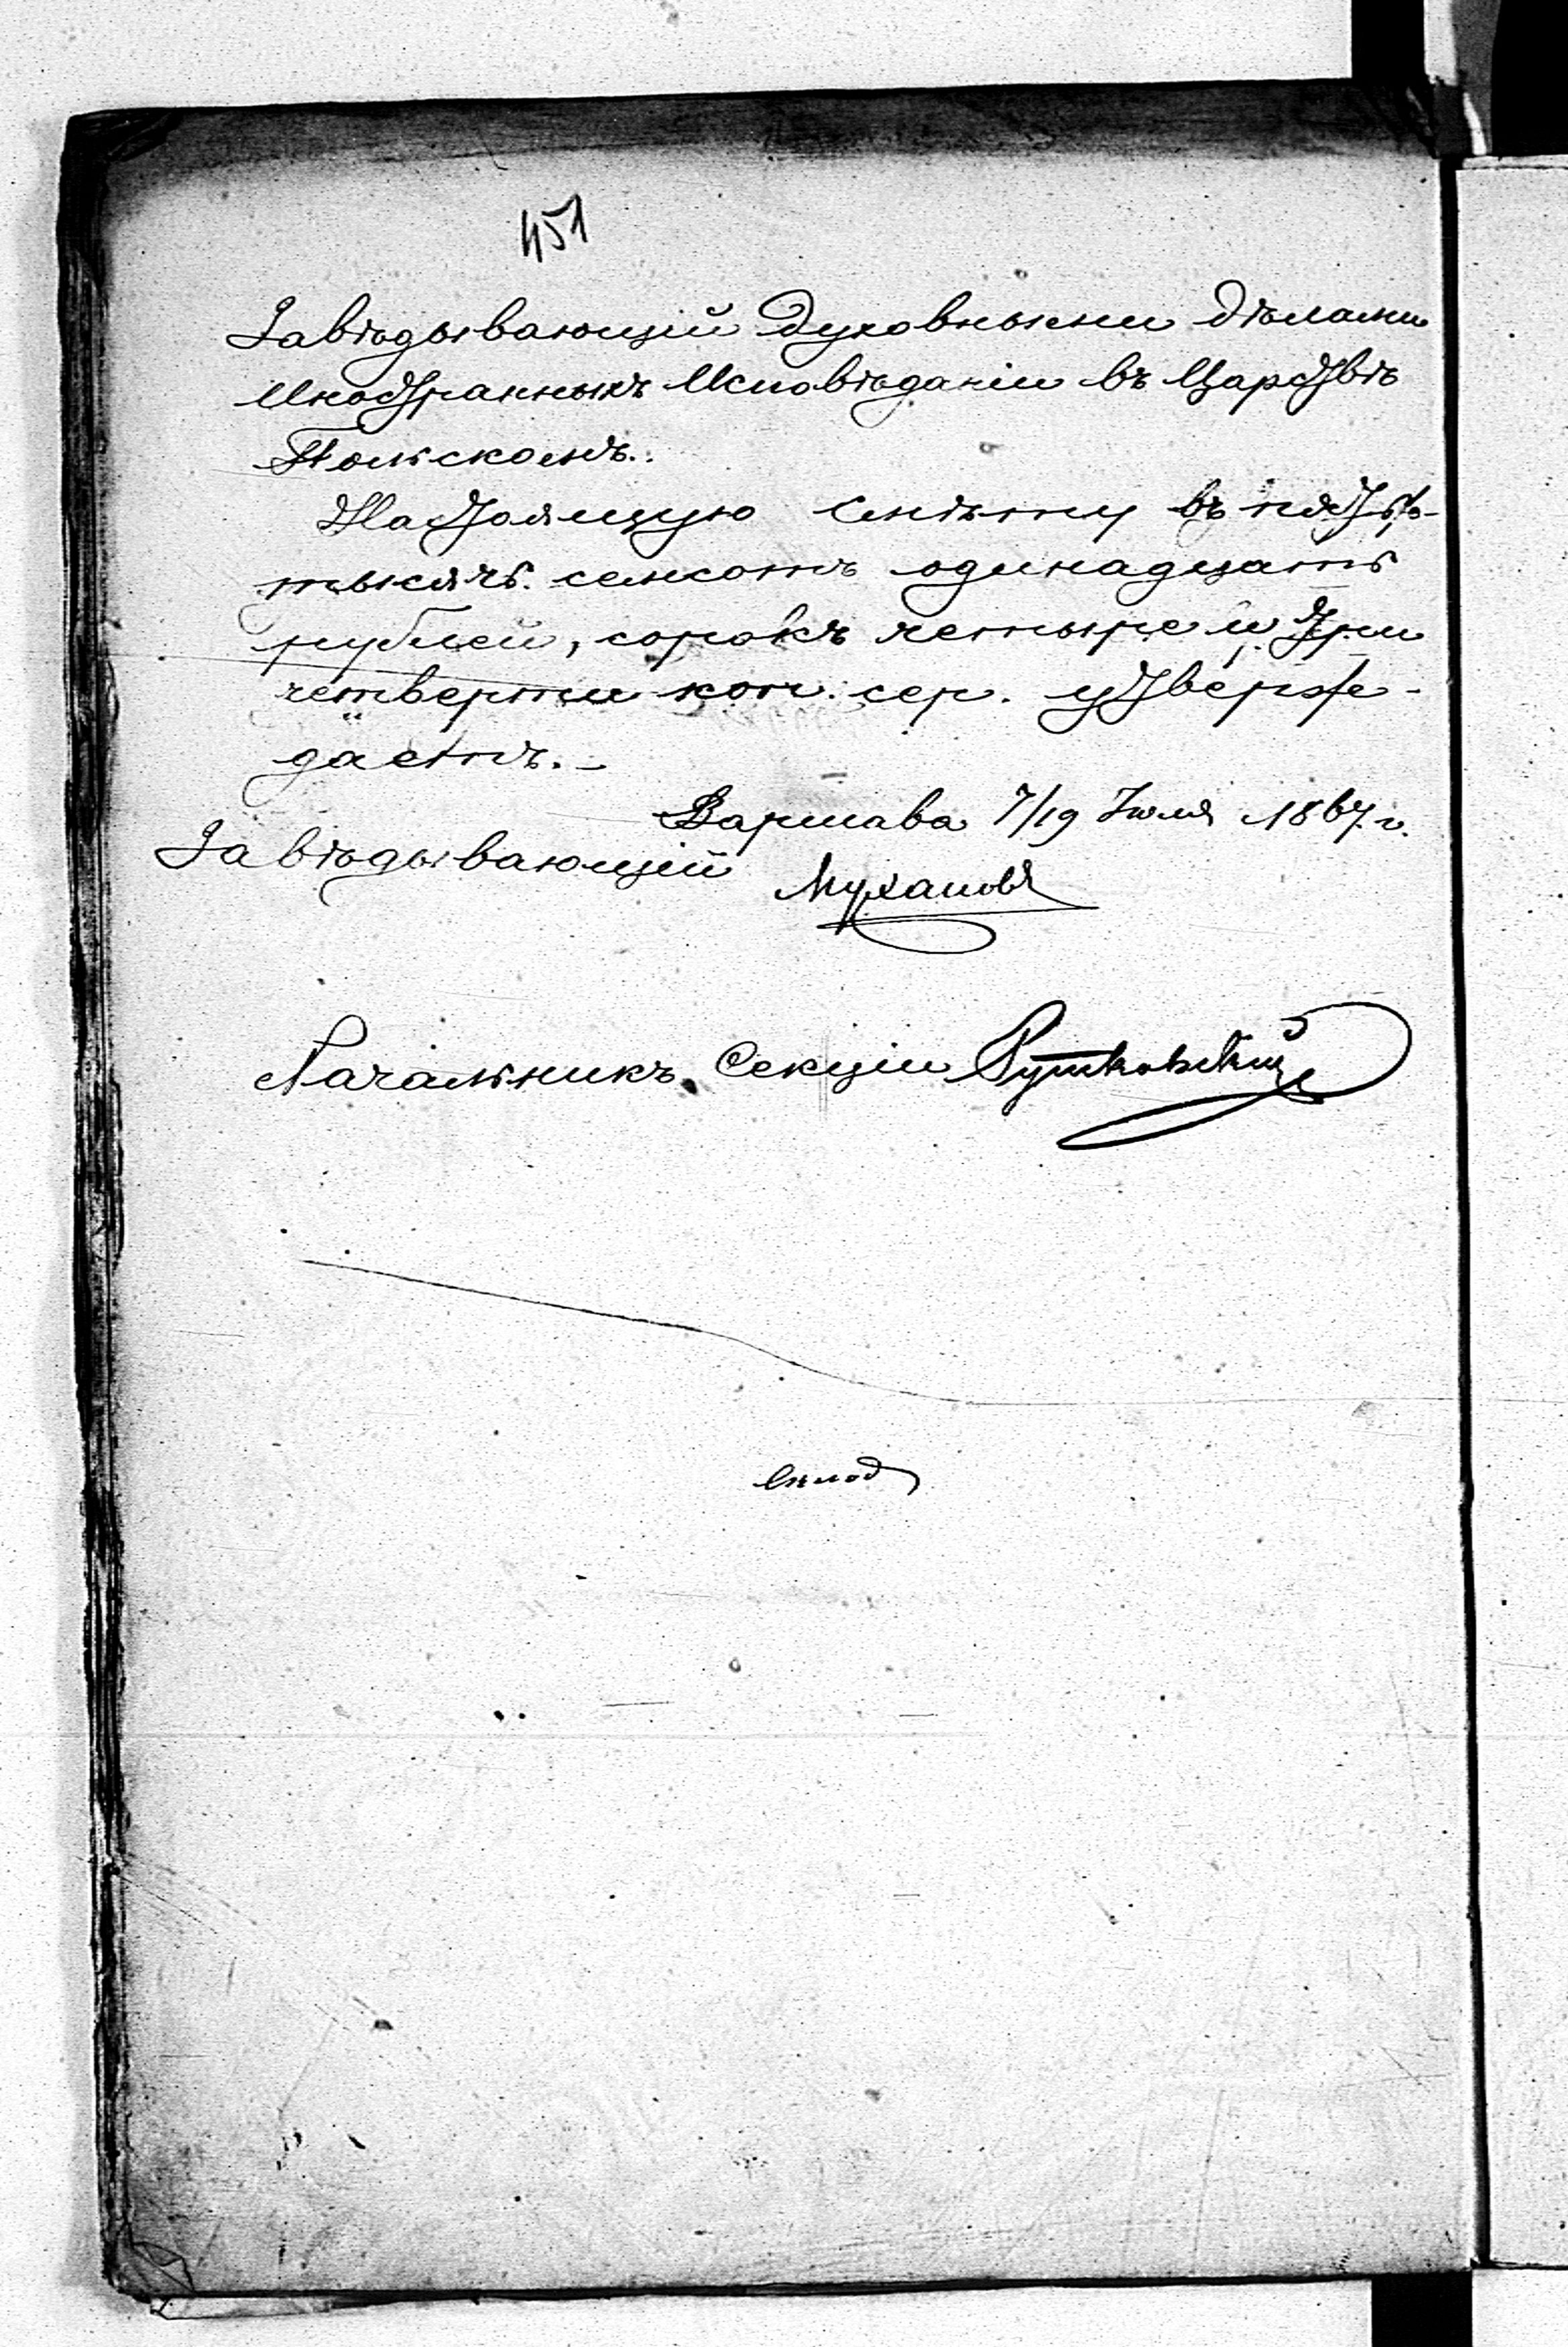 451
Завѣдывающій Духовными дѣлами
Иностранныхъ Исповѣданіи въ Царствѣ
Польскомъ.
Настоящую смѣту въ пять
тысячъ семсотъ одинадцать
рублей, сорокъ четыре и три
четверти коп. сер. утверж-
даетъ.
Варшава 7/19 Іюля 1867 г.
Завѣдывающій Мухановъ
Начальникъ Секціи Рутковскій